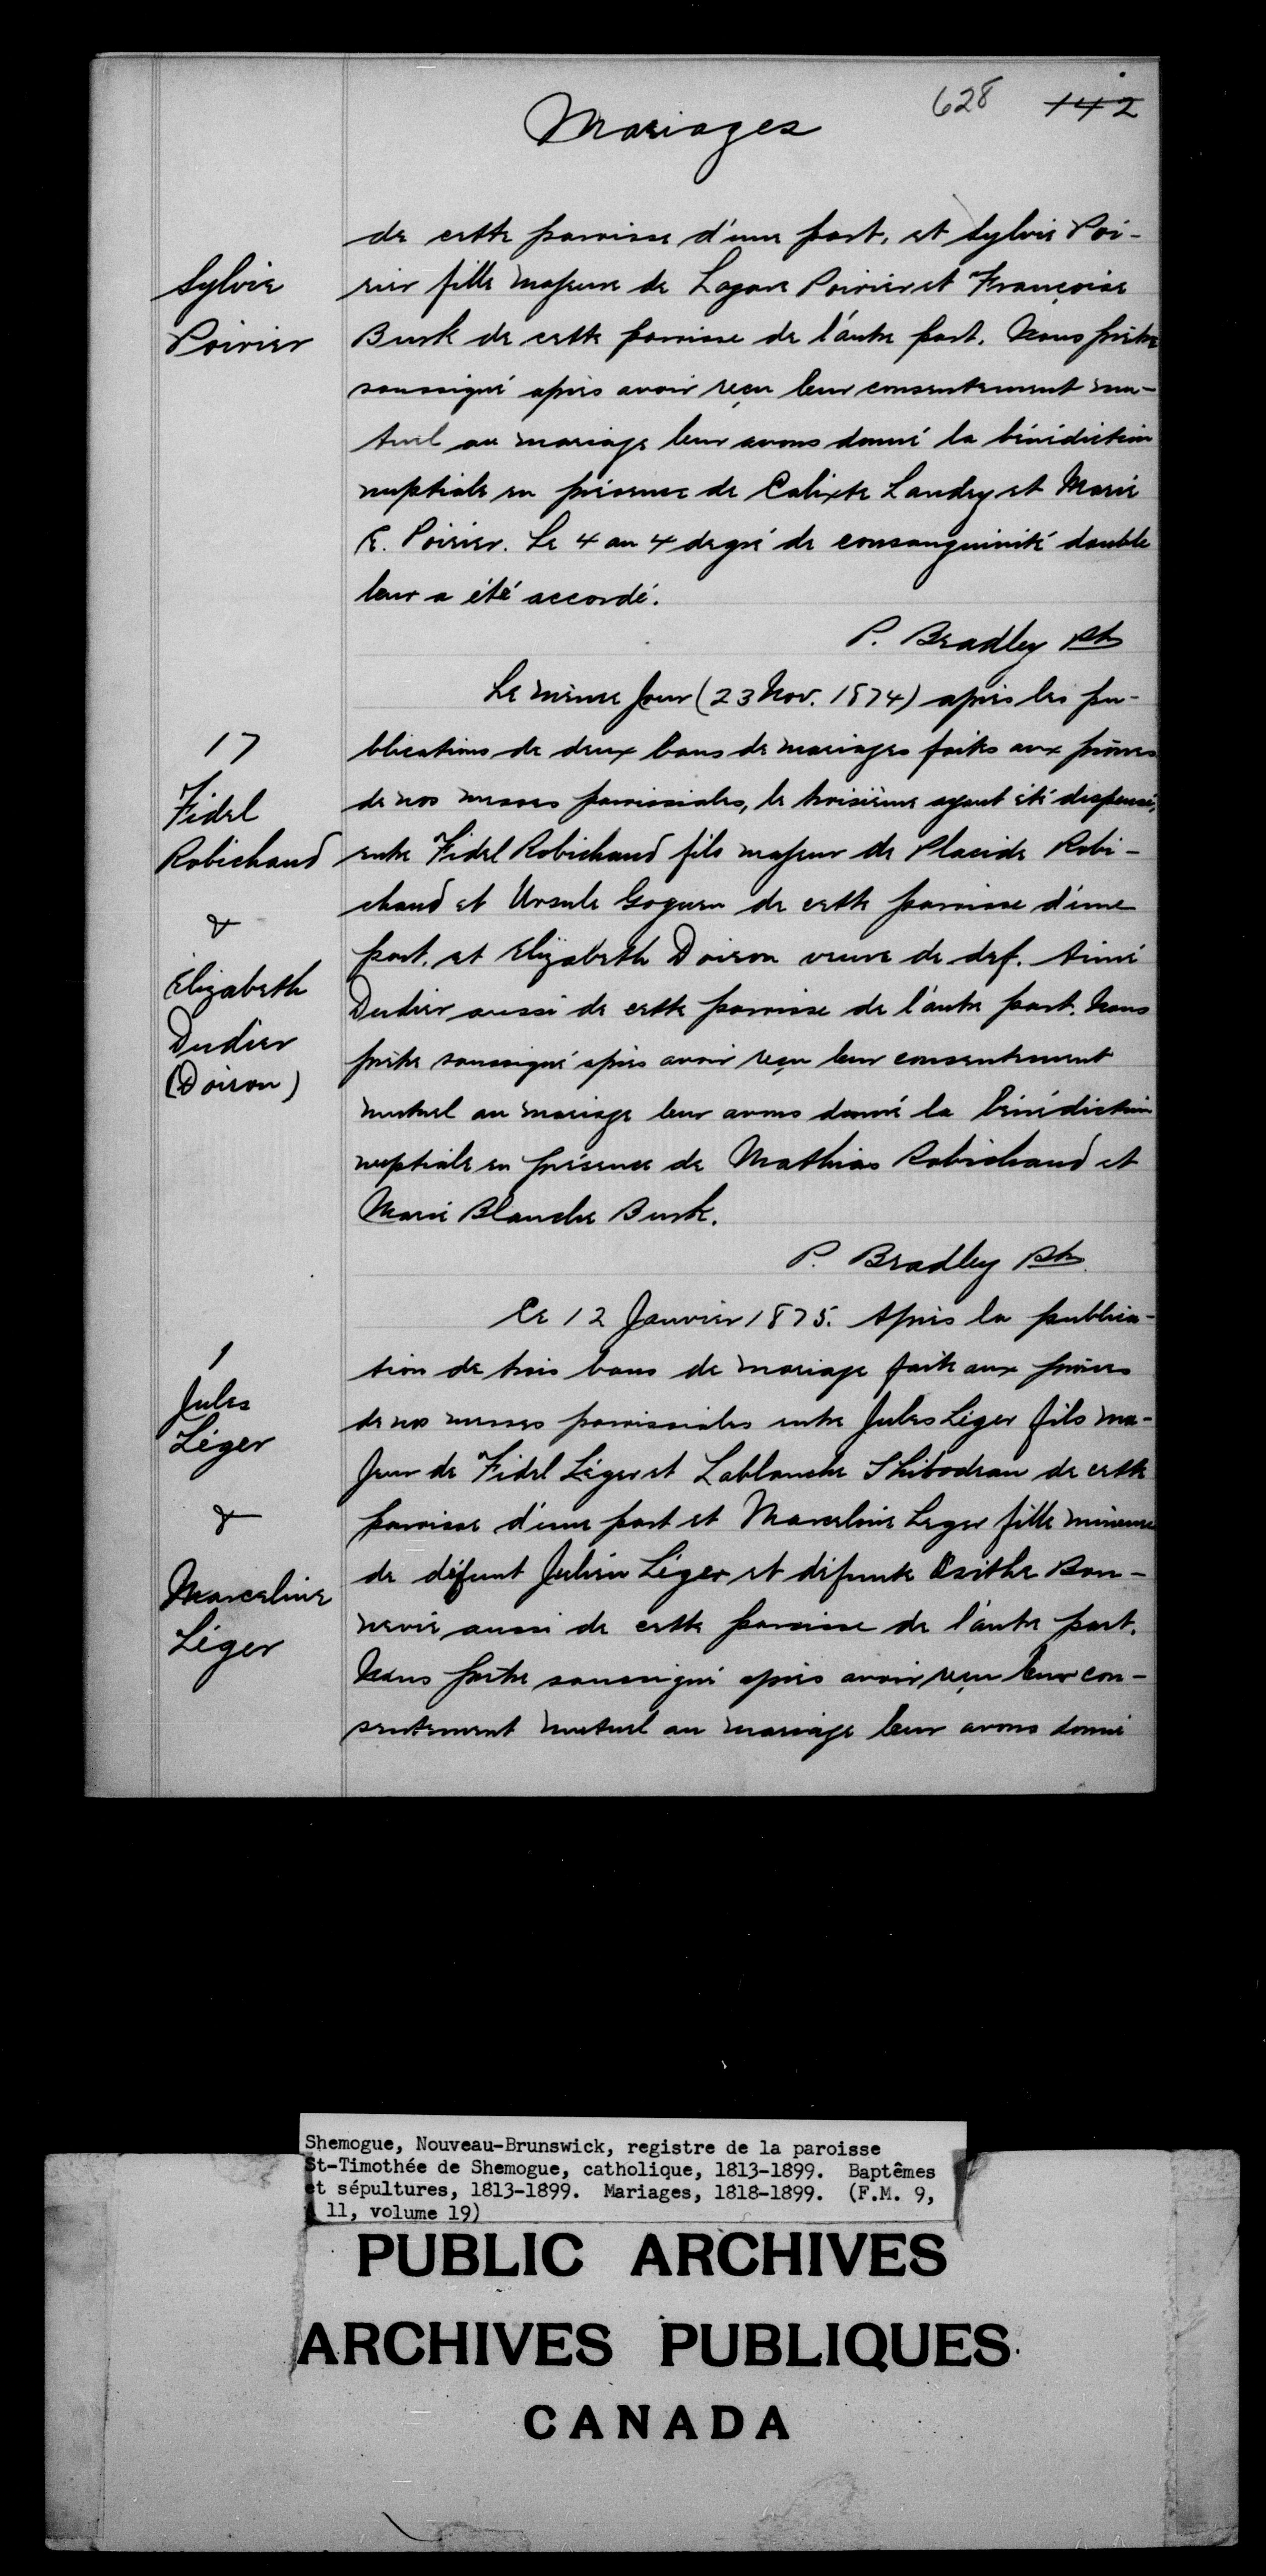 628 142
Mariages
de cette paroisse d'une part, et Sylvie Poi-
rier fille majeure de Lazare Poirier et Françoise
Burk de cette paroisse de l'autre part. Nous prêtre
soussigné après avoir reçu leur consentement mu-
tuel au mariage leur avons donné la bénédiction
nuptiale en présence de Calixte Landry et Marie
E. Poirier. Le 4 au 4 degré de consanguinité double
leur a été accordé.
P. Bradley Ptr
Sylvie
Poirier
Le même jour (23 Nov. 1874) après les pu-
blications de deux bans de mariages faites aux prônes
de nos messes paroissiales, le troisième ayant été dispensé,
entre Fidel Robichaud fils majeur de Placide Robi-
chaud et Ursule Goguen de cette paroisse d'une
part, et Elizabeth Doiron veuve de def. Aimé
Dudier aussi de cette paroisse de l'autre part. Nous
prêtre soussigné après avoir reçu leur consentement
mutuel au mariage leur avons donné la bénédiction
nuptiale en présence de Mathias Robichaud et
Marie Blanche Burk.
P. Bradley Ptr
17
Fidel
Robichaud
&
Elizabeth
Dudier
(Doiron)
Ce 12 Janvier 1875. Après la publica-
tion de trois bans de mariage faite aux prônes
de nos messes paroissiales entre Jules Léger fils ma-
jeur de Fidel Léger et Lablanche Thibodeau de cette
paroisse d'une part et Marceline Leger fille mineure
de défunt Julien Léger et défunte Osithe Bon-
nevie aussi de cette paroisse de l'autre part.
Nous prêtre soussigné après avoir reçu leur con-
sentement mutuel au mariage leur avons donné
1
Jules
Léger
&
Marceline
Léger
Shemogue, Nouveau-Brunswick, registre de la paroisse
St-Timothée de Shemogue, catholique, 1813-1899. Baptêmes
et sépultures, 1813-1899. Mariages, 1818-1899. (F.M. 9,
11, volume 19)
PUBLIC ARCHIVES
ARCHIVES PUBLIQUES
CANADA